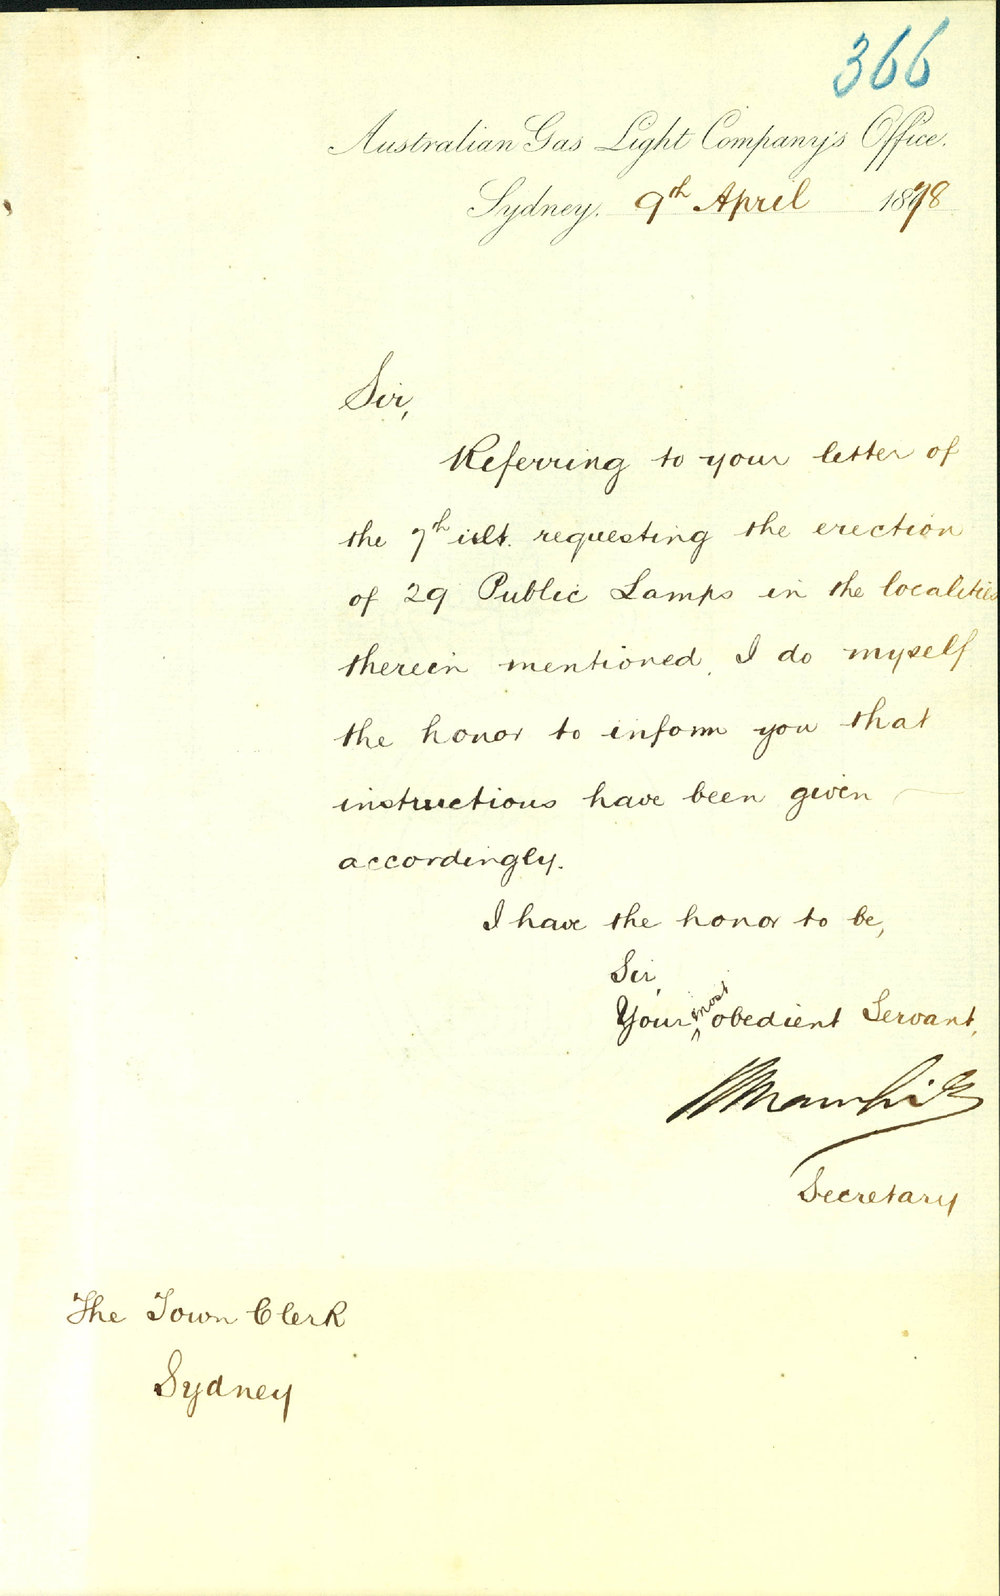 366
Australian Gas Light Company's Office.
Sydney. 9th April 1878
Sir,
Referring to your letter of
the 7th ult. requesting the erection
of 29 Public Lamps in the localities
therein mentioned, I do myself
the honor to inform you that
instructions have been given
accordingly.
I have the honor to be,
Sir,
Your most obedient Servant,
Secretary
The Town Clerk
Sydney